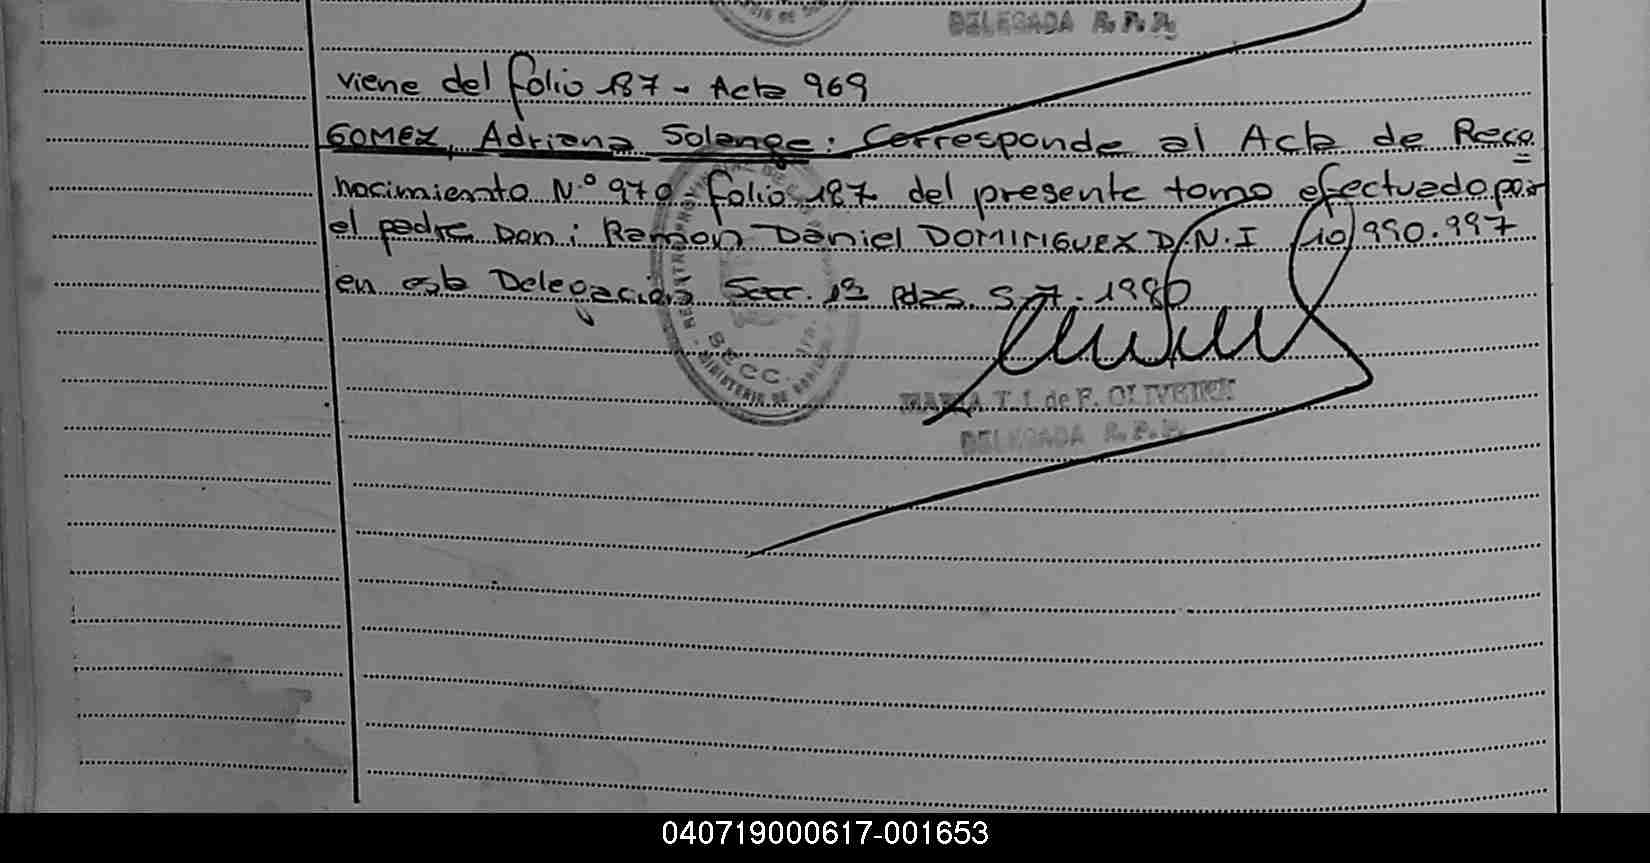 DELEGADA R. P. P.
viene del folio 187 - Acta 969
GOMEZ, Adriana Solange: Corresponde al Acta de Reco
nocimiento N.º 970 - folio 187 del presente tomo efectuado por
el padre Don: Ramon Daniel DOMINGUEZ D.N.I (10) 990.997
en esta Delegación Secc. 1ª Pdas. 5.7.1980
SECC.
MARIA T. I. de F. OLIVEIRA
DELEGADA R. P. P.
040719000617-001653